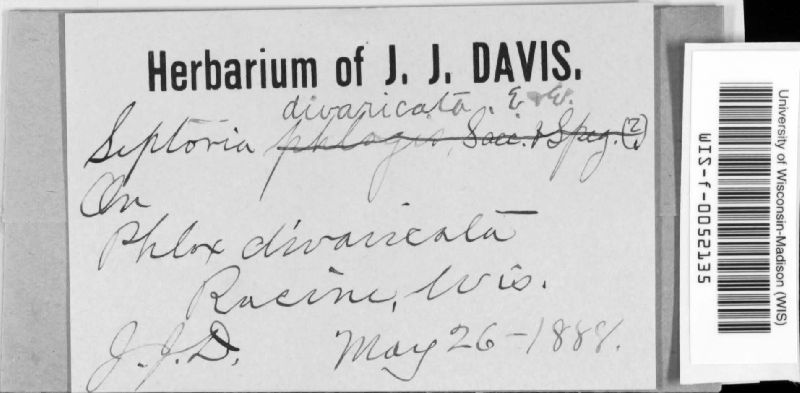 Herbarium of J. J. DAVIS.
divaricata. E & E.
Septoria phlogis, Sacc. & Speg. (?)
On
Phlox divaricata
Racine, Wis.
J.J.D. May 26-1888.
University of Wisconsin-Madison (WIS)
WIS-f-0052135